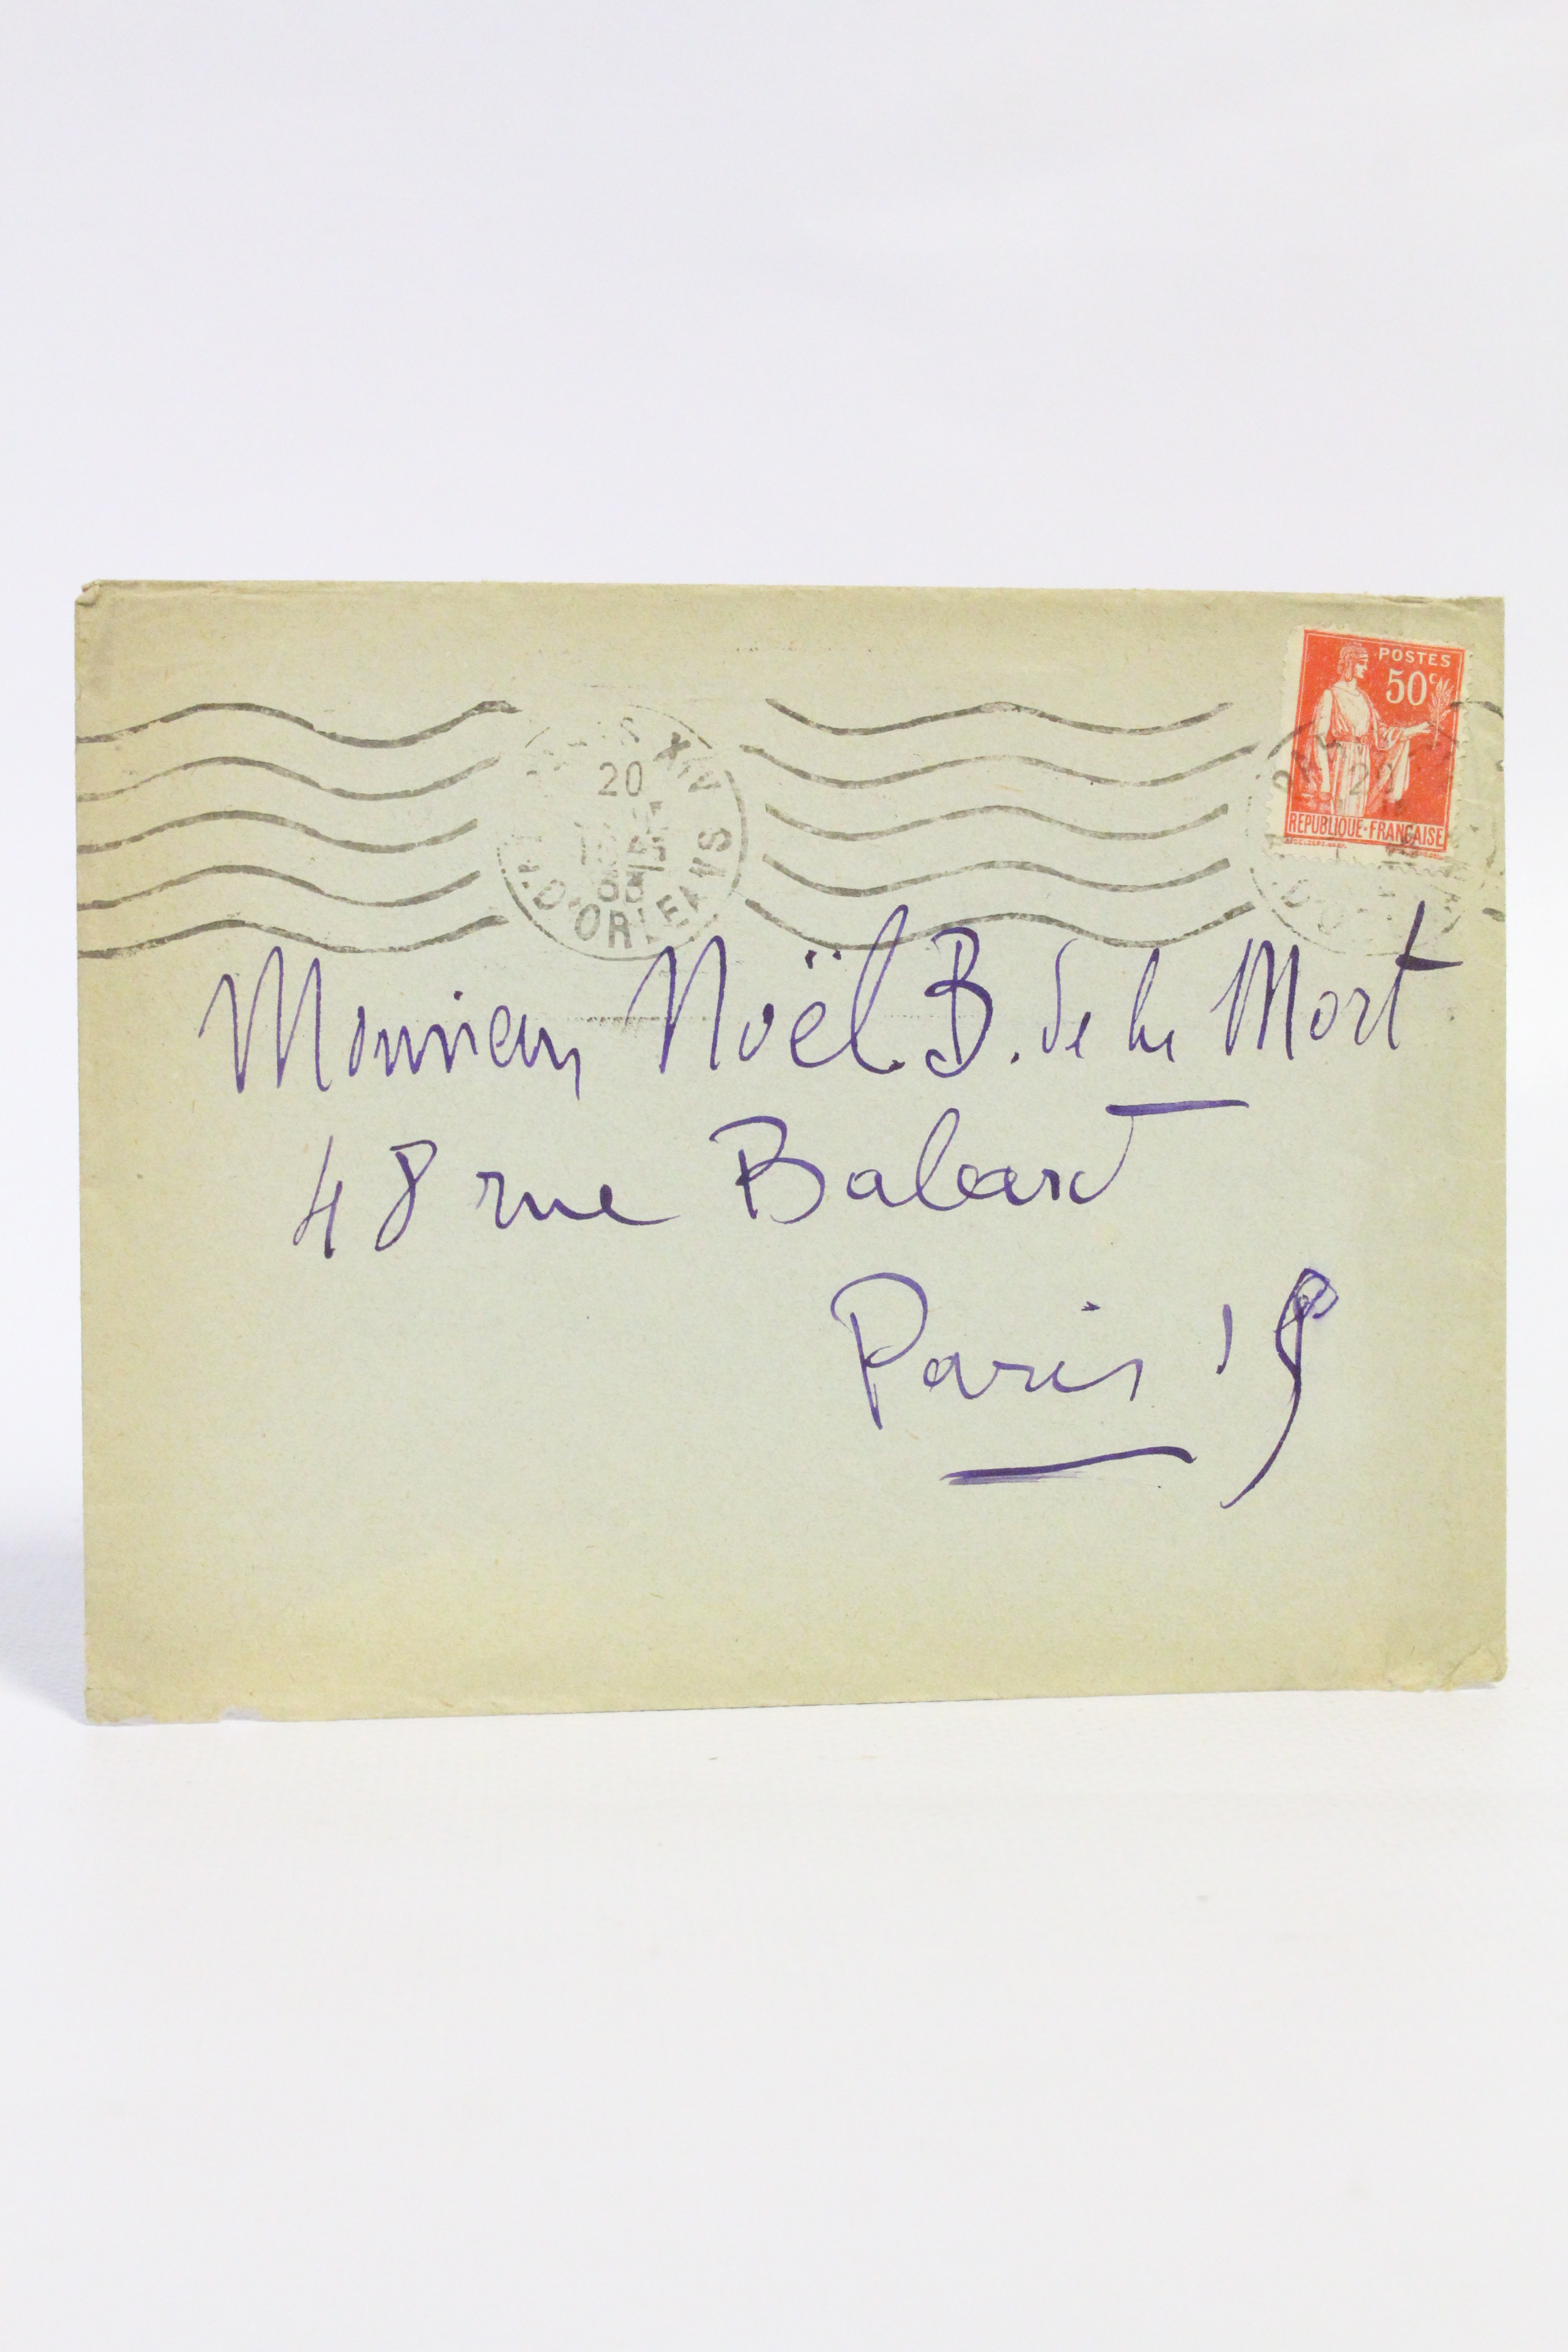 POSTES
50c
REPUBLIQUE-FRANÇAISE
XIV
20
D'ORLEANS
Monsieur Noël B. de la Mort
48 rue Balard
Paris 15